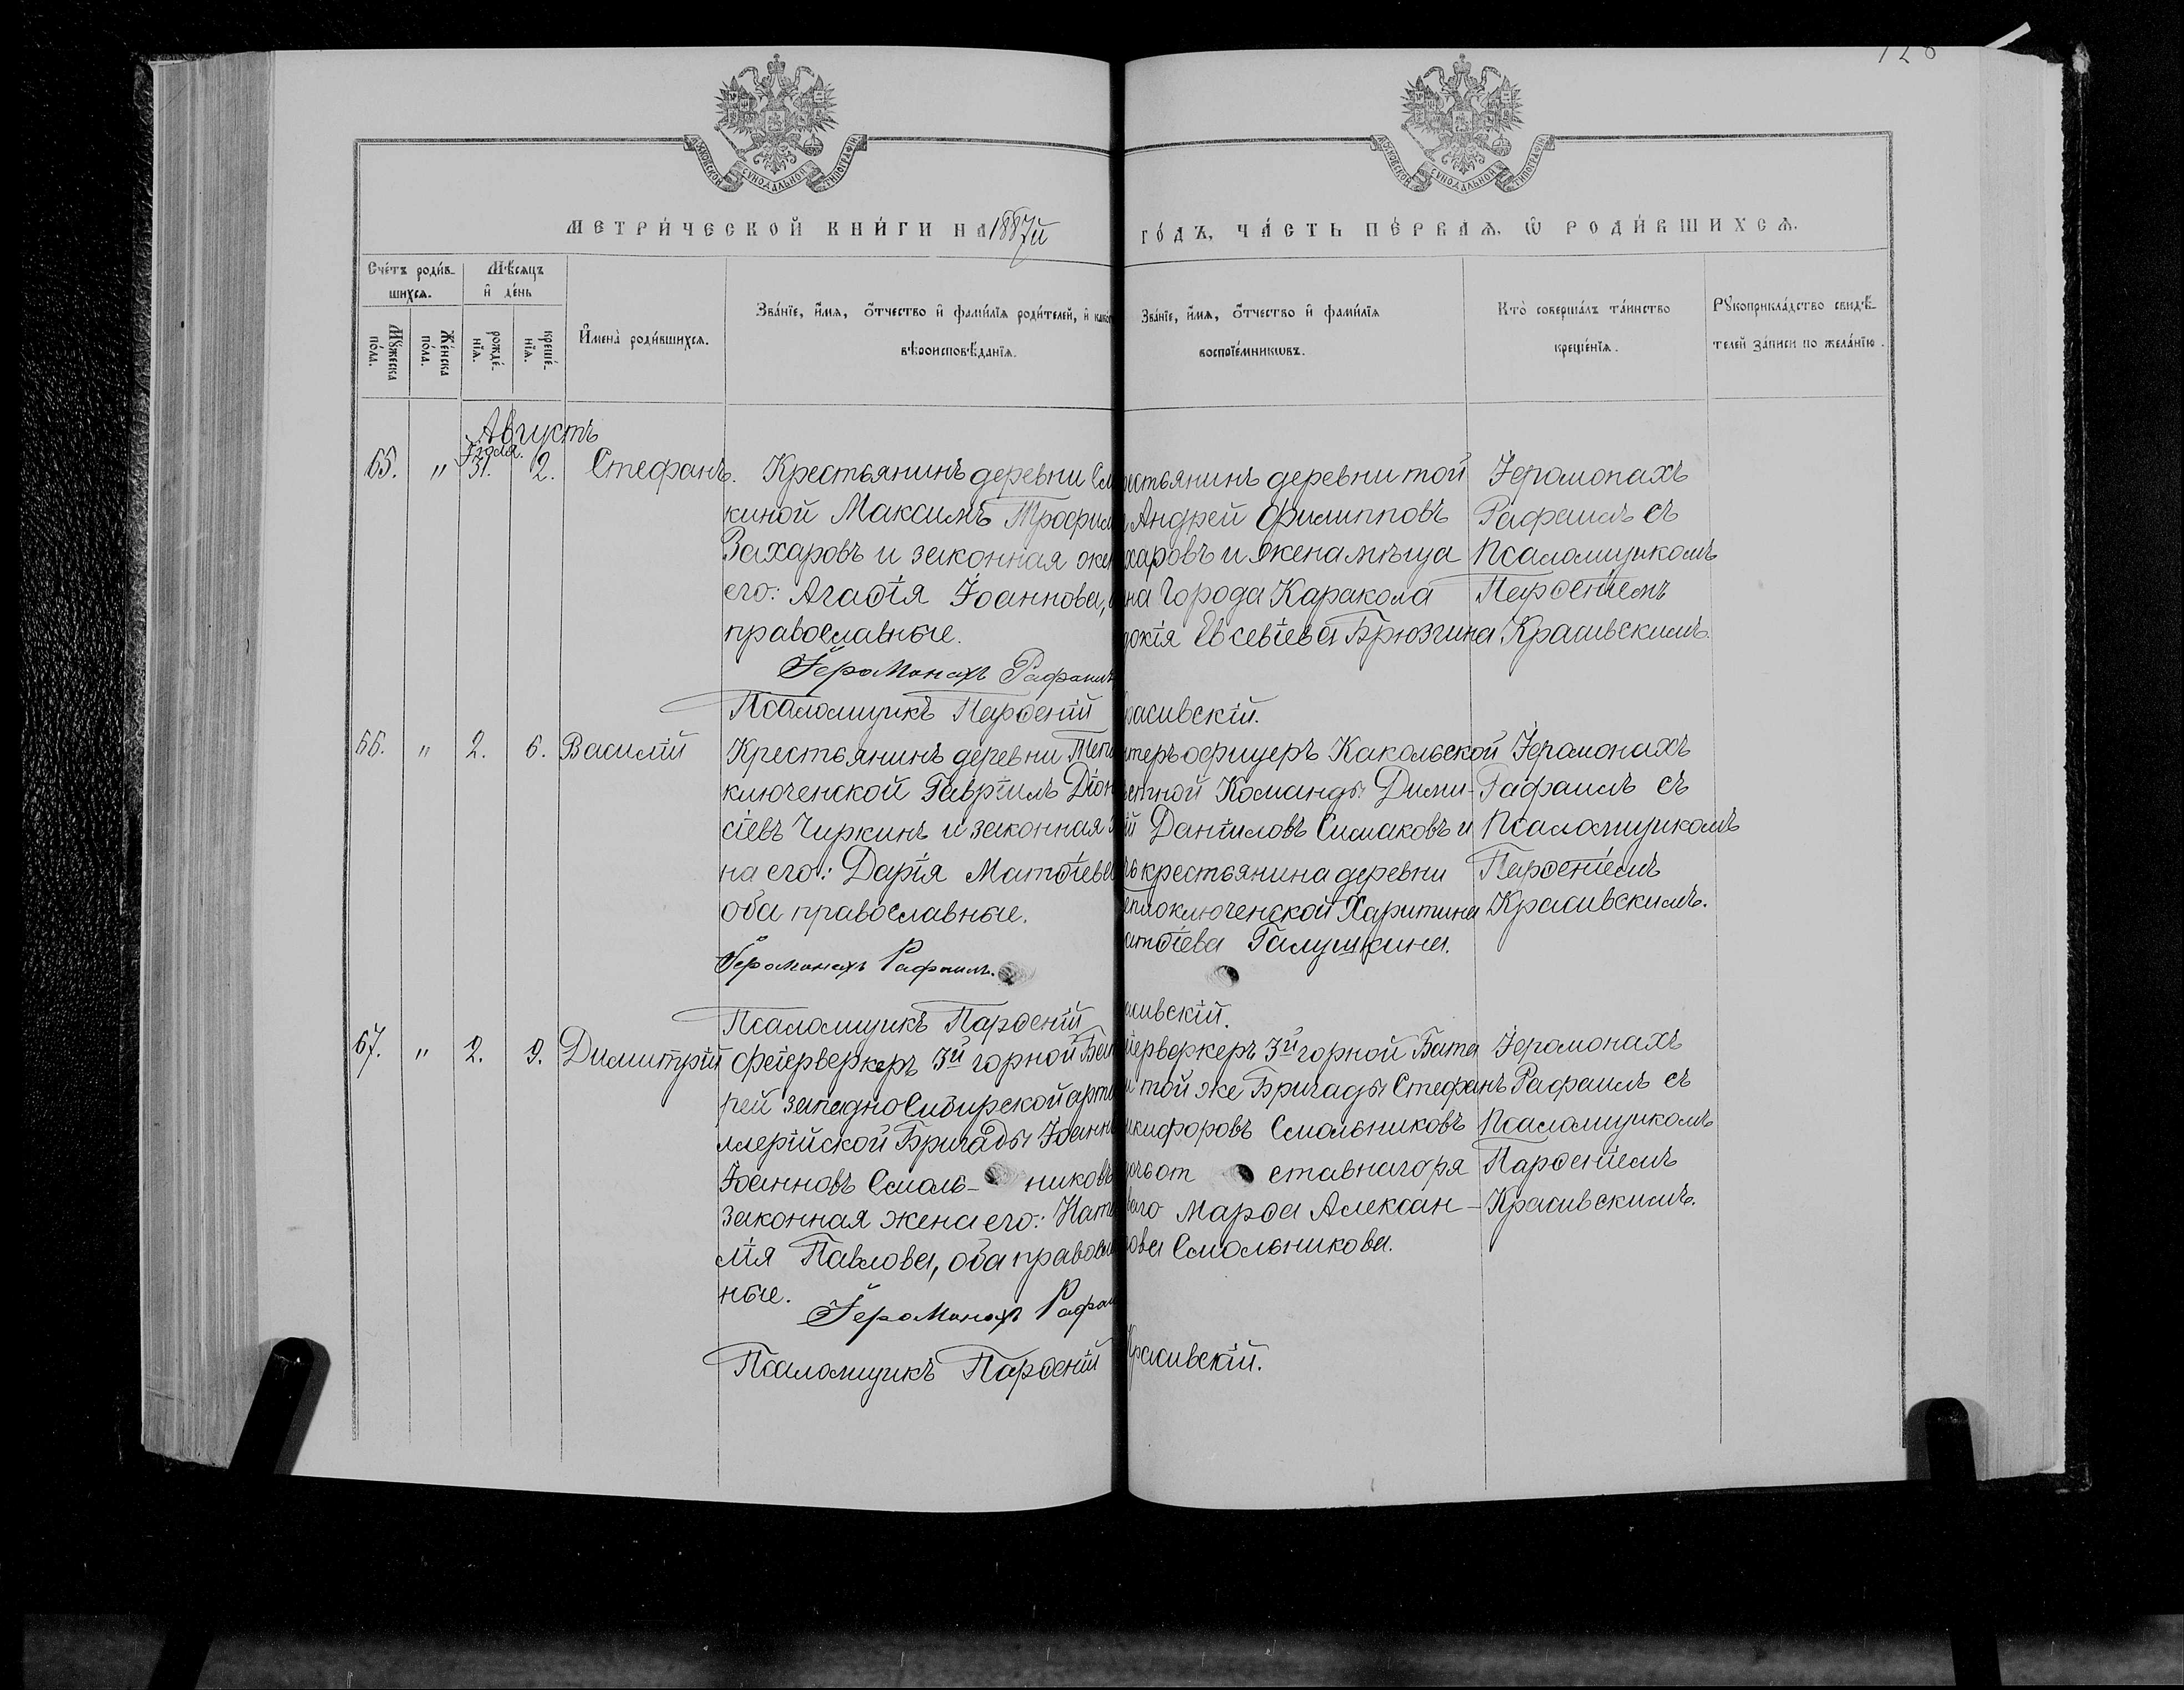 128
МОСКОВСКОЙ СѴНОДАЛЬНОЙ ТИПОГРАФІИ
МОСКОВСКОЙ СѴНОДАЛЬНОЙ ТИПОГРАФІИ
МЕТРИ́ЧЕСКОЙ КНИ́ГИ НА 1887й
ГО́ДЪ, ЧА́СТЬ ПЕ́РВАѦ, Ѡ РОДИ́ВШИХСѦ.
Сче́тъ роди́в-
шихсѧ.
Мѣ́сѧцъ
и҆ де́нь
Мꙋ́жеска
по́ла.
Же́нска
по́ла.
рожде́-
нїѧ.
креще́-
нїѧ.
И҆мена̀ роди́вшихсѧ.
Зва́нїе, и҆́мѧ, ѻ҆́тчество и҆ фами́лїѧ роди́телей, и҆
вѣроисповѣ́данїѧ.
Зва́нїе, и҆́мѧ, ѻ҆́тчество и҆ фами́лїѧ
воспрїе́мникѡвъ.
Кто̀ соверша́лъ та́инство
креще́нїѧ.
Рꙋкоприкла́дство свидѣ́-
телей за́писи по жела́нїю.
Августъ
Іюля.
65. " 31. 2. Стефанъ. Крестьянинъ деревни
киной Максимъ Трофим
Захаровъ и законная же
его: Агафія Іоаннова,
православные.
Іеромонахъ Рафаилъ
Псаломщикъ Парѳеній
рестьянинъ деревни той
Андрей Филипповъ
харовъ и жена мѣща
на Города Каракола
докія Евсевіева Брюзгина
расивскій.
Іеромонахъ
Рафаилъ съ
Псаломщикомъ
Парѳеніемъ
Красивскимъ.
66. " 2. 6. Василій Крестьянинъ деревни Теп
ключенской Гавріилъ Діон
сіевъ Чиркинъ и законная
на его: Дарія Матѳіев
оба православные.
Іеромонахъ Рафаилъ.
Псаломщикъ Парѳеній
теръ офицеръ Какольской
стной Команды Дими-
ій Даниловъ Симаковъ и
чь крестьянина деревни
еплоключенской Харитина
атѳіева Галушкина.
асивскій.
Іеромонахъ
Рафаилъ съ
Псаломщикомъ
Парѳеніемъ
Красивскимъ.
67. " 2. 9. Димитрій Фейерверкеръ 3й горной Бат
реи западно Сибирской арти
ллерійской Бригады Іоанн
Іоанновъ Смоль- никовъ
законная жена его: Ната
лія Павлова, оба правосл
ные.
Іеромонахъ Рафаи
Псаломщикъ Парѳеній
ерверкеръ 3й горной Бата
и той же Бригады Стефанъ
икифоровъ Смольниковъ
очь от ставнаго ря
ваго Марѳа Алексан-
рова Смольникова.
Красивскій.
Іеромонахъ
Рафаилъ съ
Псаломщикомъ
Парѳеніемъ
Красивскимъ.